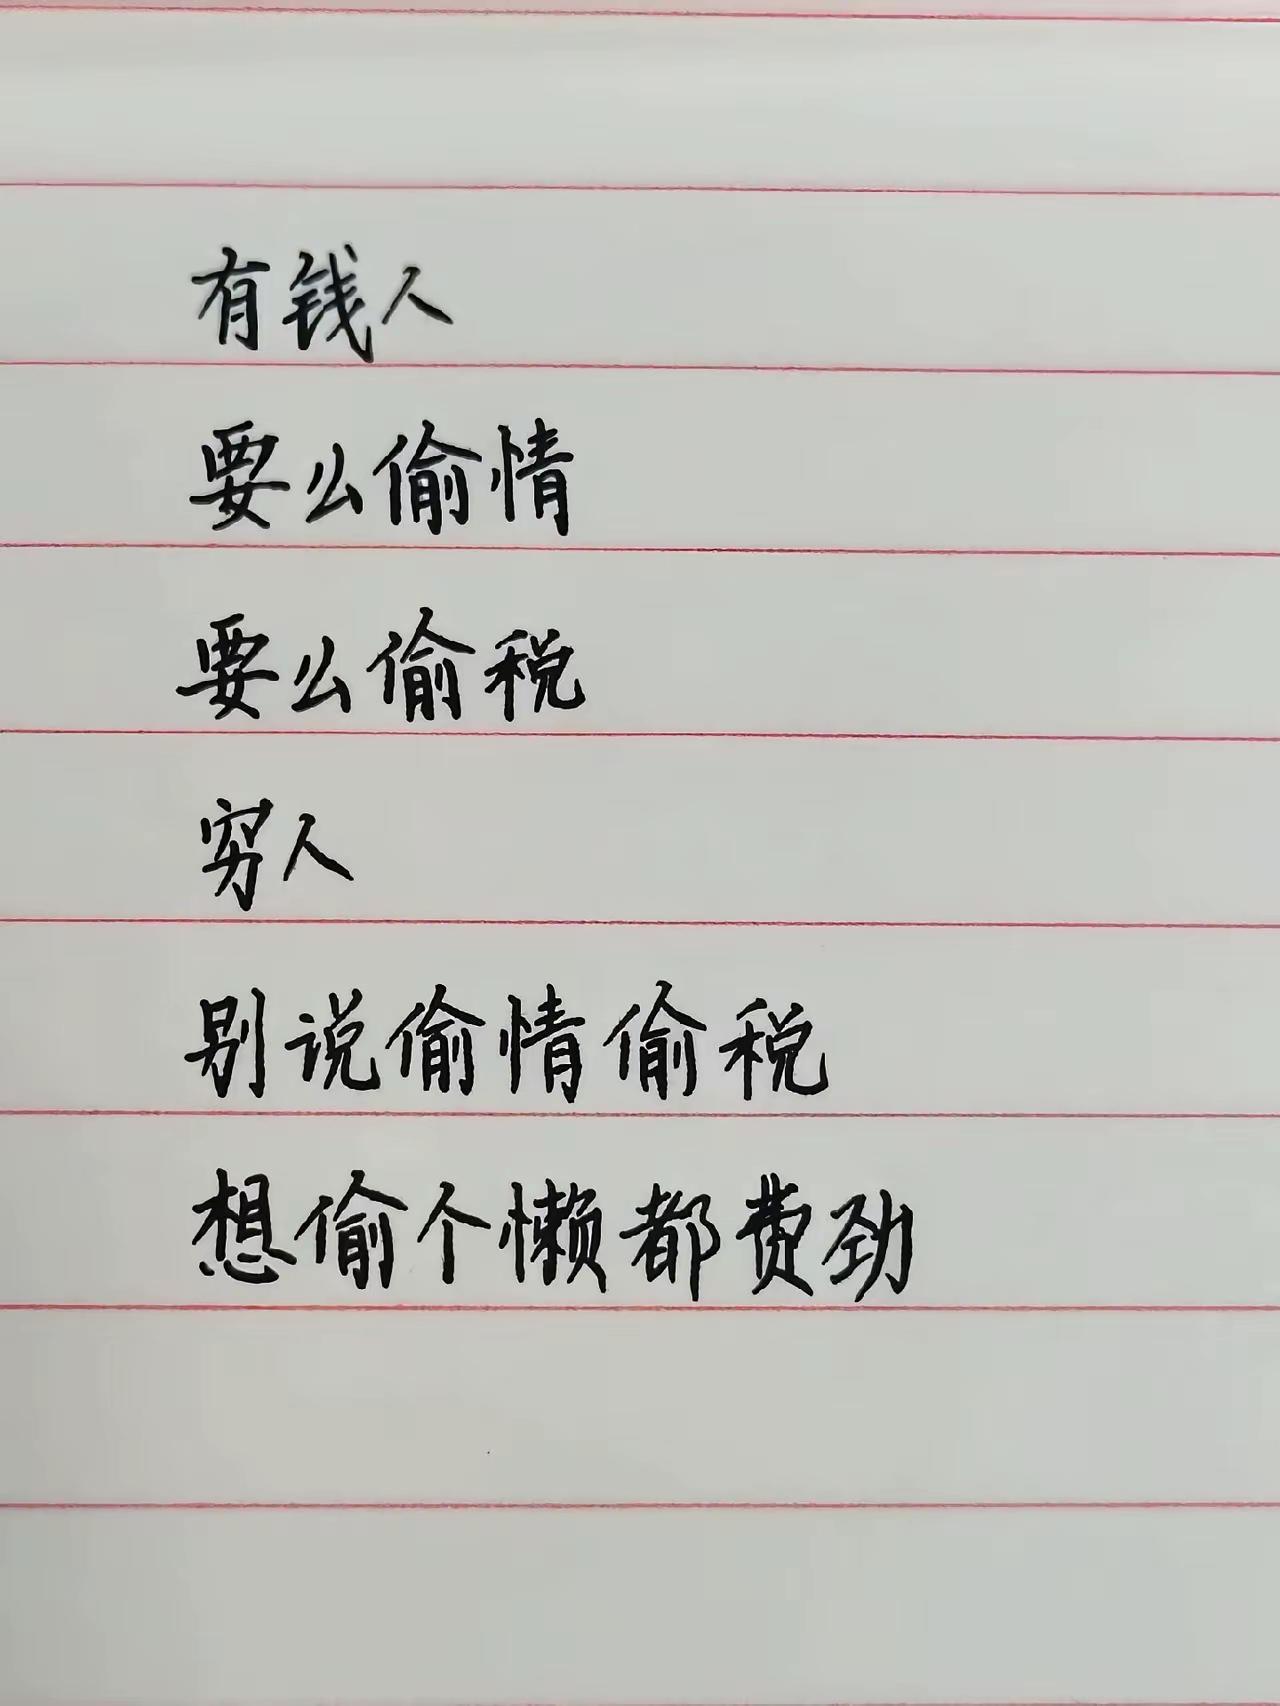 有钱人
要么偷情
要么偷税
穷人
别说偷情偷税
想偷个懒都费劲